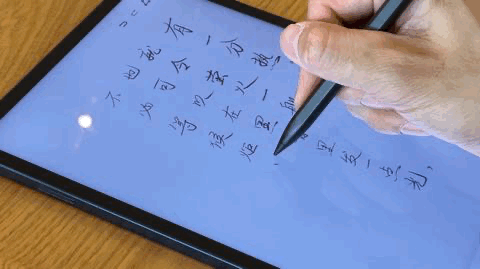 有一分热
就令萤火一般
也可以在黑里发一点光,
不必等候炬